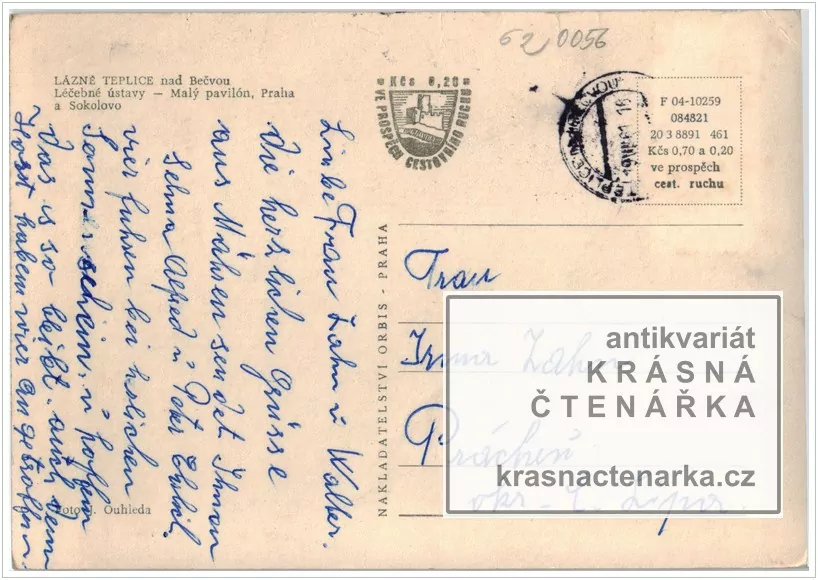 62 0056
LÁZNĚ TEPLICE nad Bečvou
Léčebné ústavy — Malý pavilón, Praha
a Sokolovo
Kčs 0,20
VE PROSPĚCH CESTOVNÍHO RUCHU
F 04-10259
084821
20 3 8891 461
Kčs 0,70 a 0,20
ve prospěch
cest. ruchu
Liebe Frau Zahn u Walter.
Die herzlichen Grüsse
aus Mähren sendet Ihnen
Selma Alfred u Peter
vier fuhren bei
Sonnenschein. u hoffen
das is so bleibt. auch dem
Horst habem wier an getroffen.
Foto J. Ouhleda
NAKLADATELSTVÍ ORBIS - PRAHA
Frau
Irma Zahn
Prácheň
okr. Č. Lípa.
antikvariát
KRÁSNÁ
ČTENÁŘKA
krasnactenarka.cz